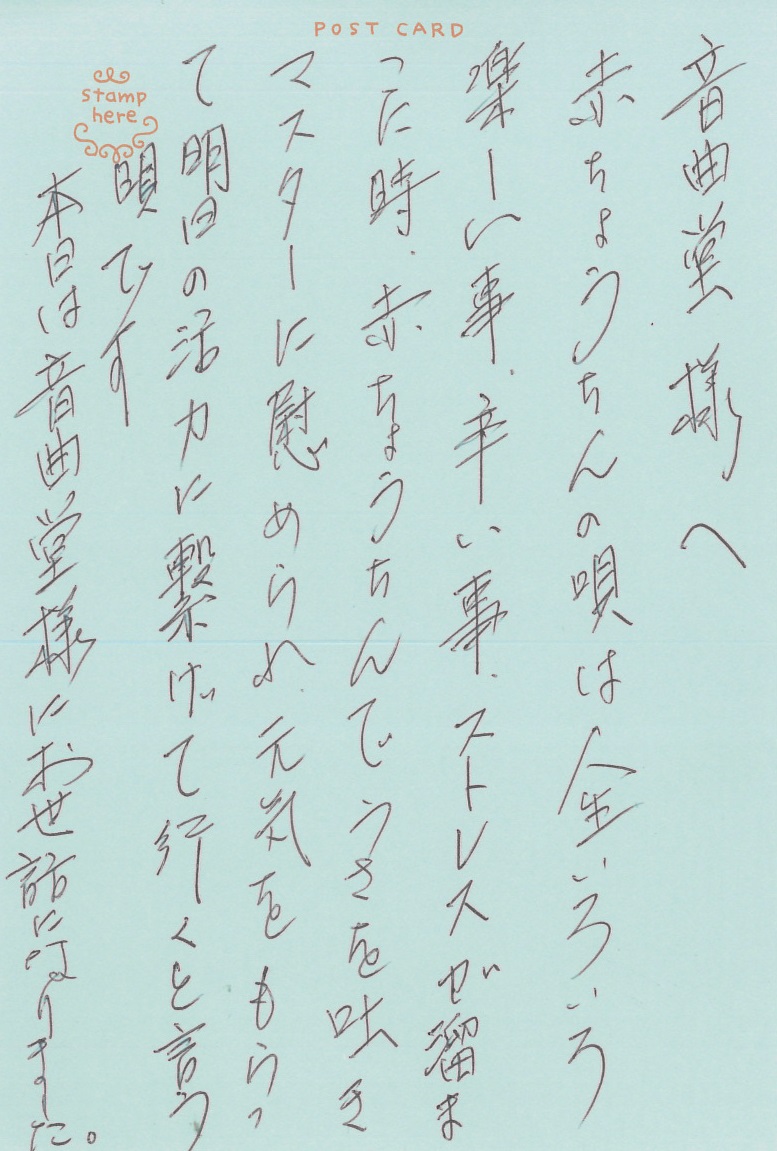 POST CARD
stamp
here
音曲堂様へ
赤ちょうちんの唄は人生いろいろ
楽しい事、辛い事、ストレスが溜ま
った時、赤ちょうちんでうさを吐き
マスターに慰められ、元気をもらっ
て明日の活力に繋げて行くと言う
唄です
本日は音曲堂様にお世話になりました。